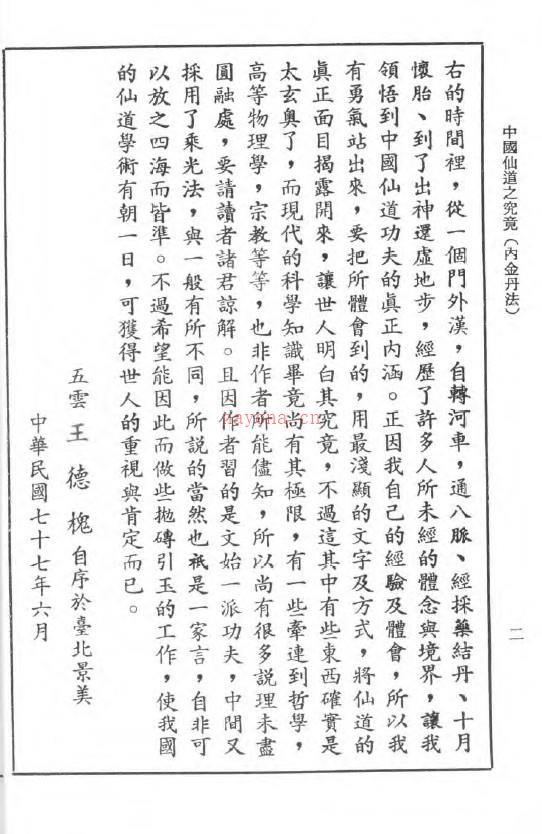 中國仙道之究竟（內金丹法）
二
右的時間裡，從一個門外漢，自轉河車，通八脈、經採藥結丹、十月
懷胎、到了出神還虛地步，經歷了許多人所未經的體念與境界，讓我
領悟到中國仙道功夫的眞正內涵。正因我自己的經驗及體會，所以我
有勇氣站出來，要把所體會到的，用最淺顯的文字及方式，將仙道的
眞正面目揭露開來，讓世人明白其究竟，不過這其中有些東西確實是
太玄奧了，而現代的科學知識畢竟尚有其極限，有一些牽連到哲學，
高等物理學，宗教等等，也非作者所能儘知，所以尚有很多說理未盡
圓融處，要請讀者諸君諒解。且因作者習的是文始一派功夫，中間又
採用了乘光法，與一般有所不同，所說的當然也祇是一家言，自非可
以放之四海而皆準。不過希望能因此而做些拋磚引玉的工作，使我國
的仙道學術有朝一日，可獲得世人的重視與肯定而已。
五雲 王 德 槐 自序於臺北景美
中華民國七十七年六月
nayona.cn